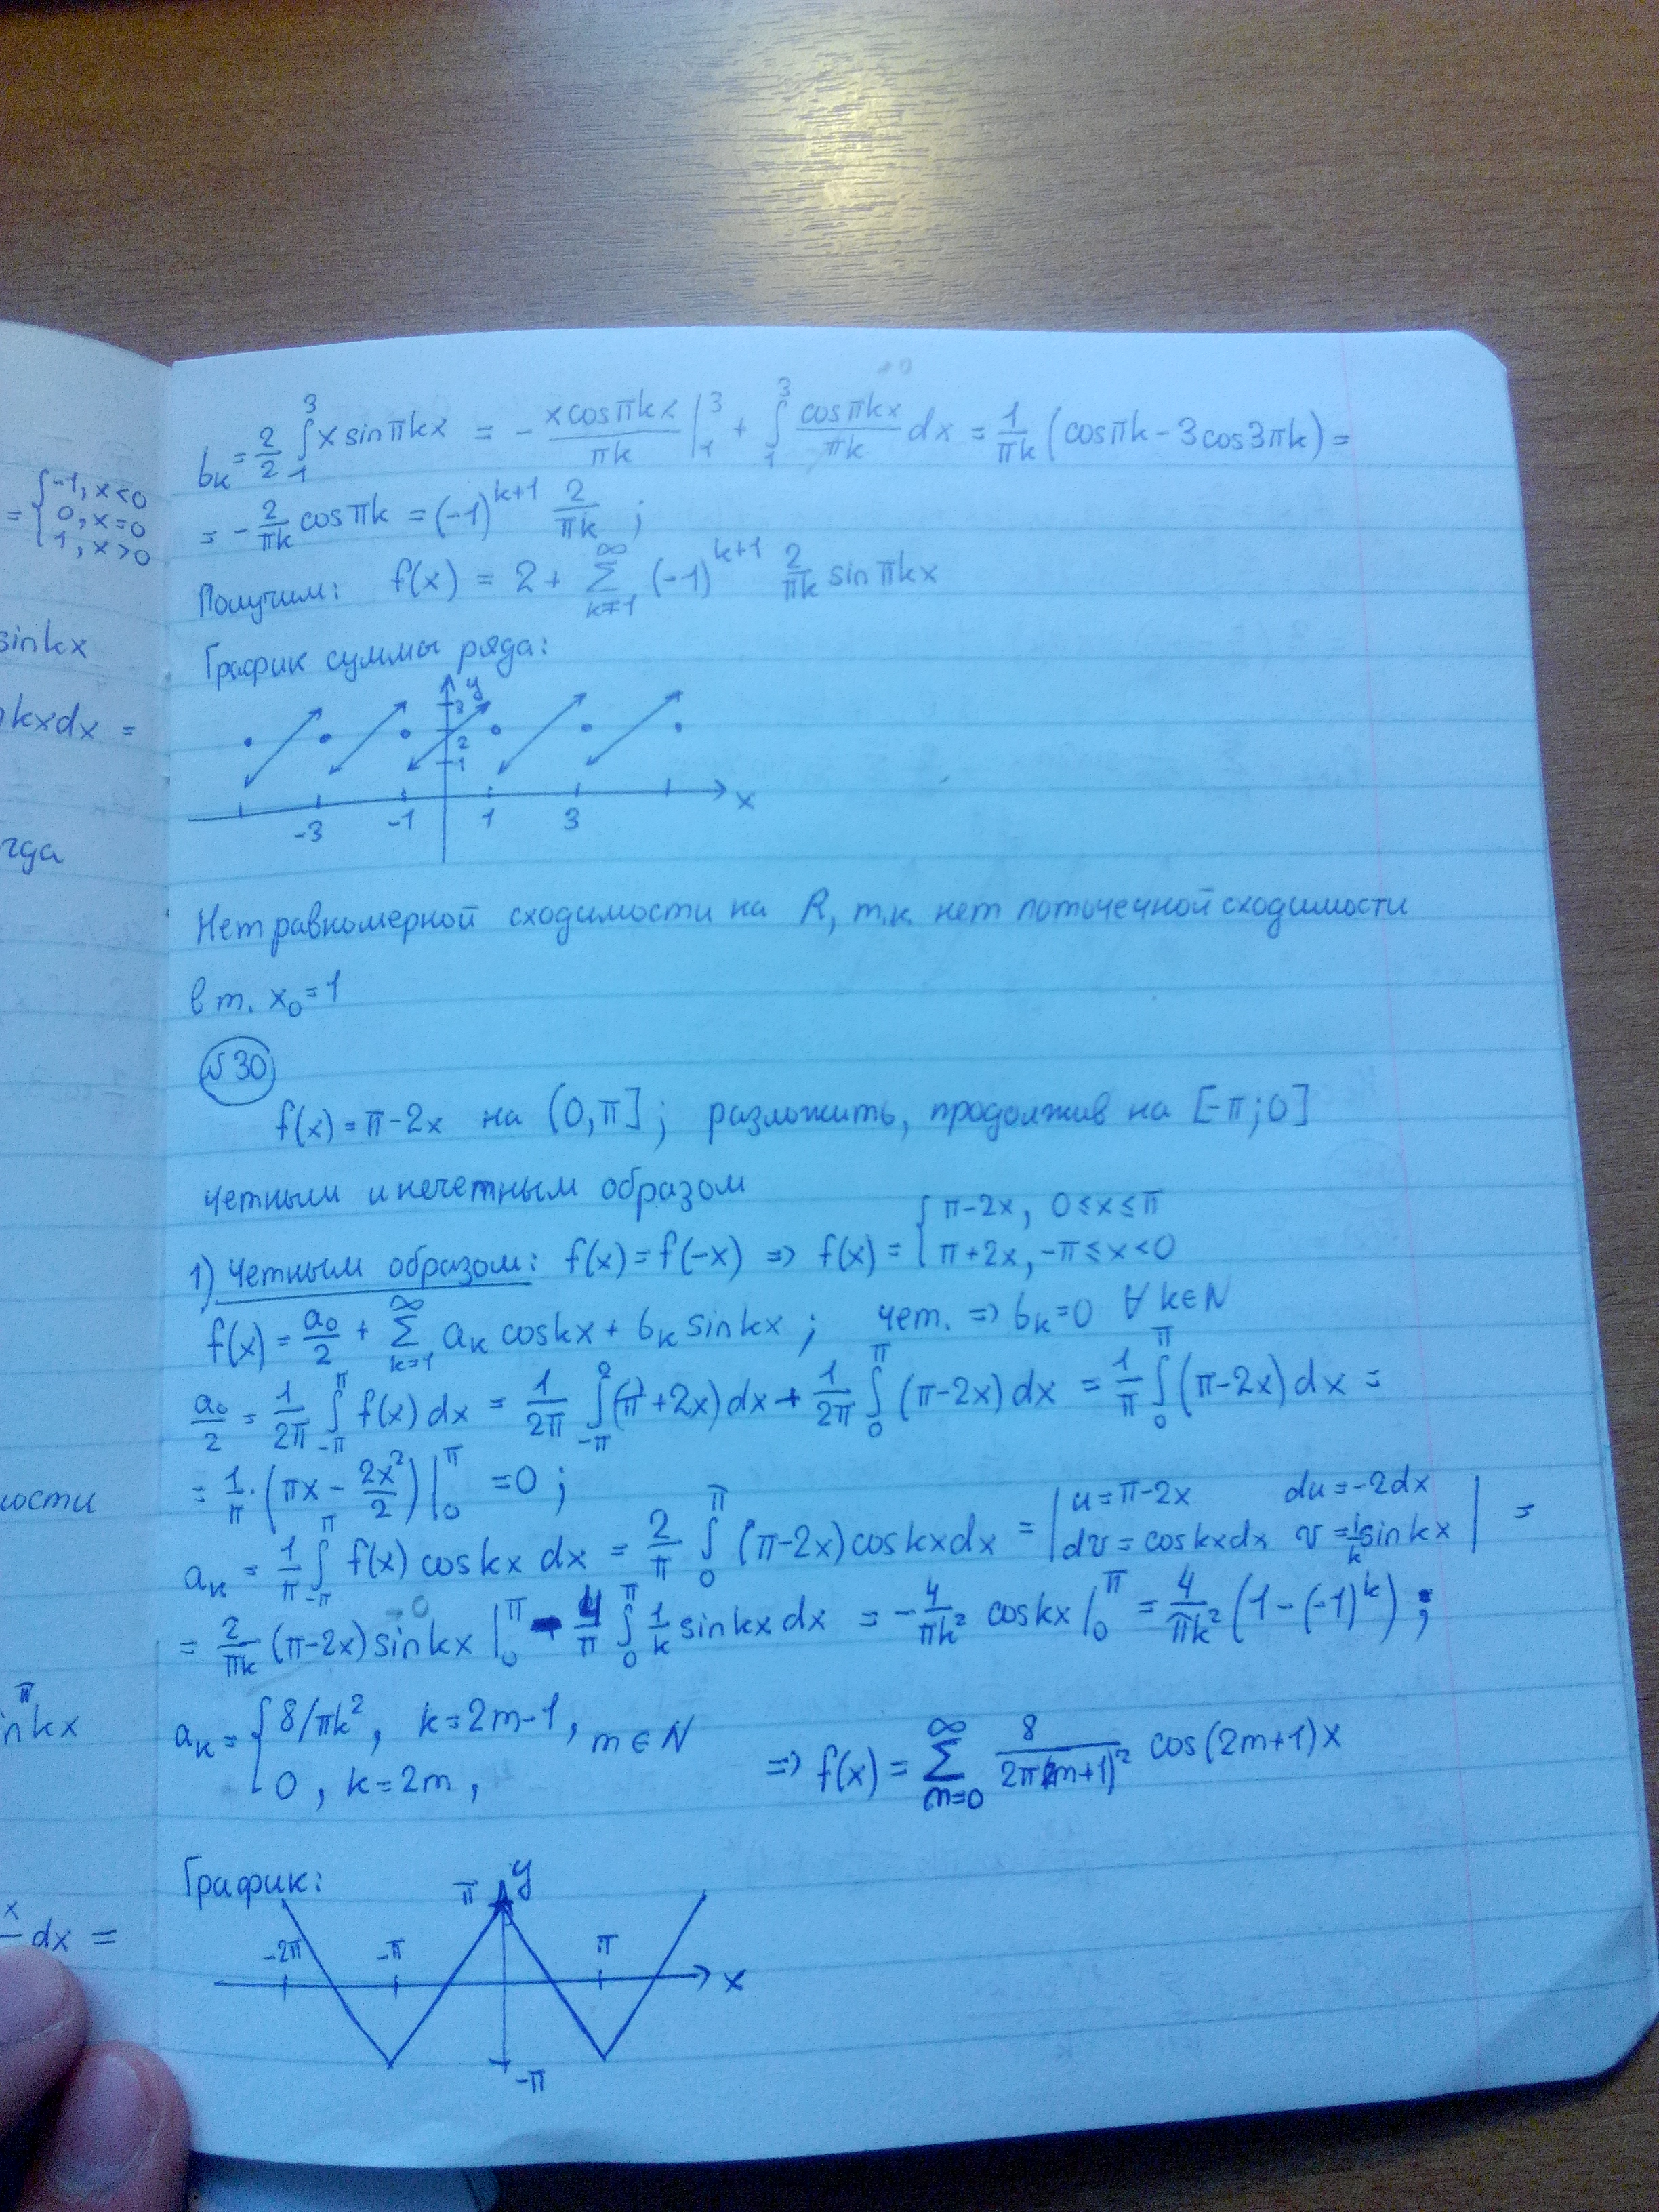 b_k = 2/2 ∫_1^3 x sin πkx = - (x cos πkx)/(πk) |_1^3 + ∫_1^3 (cos πkx)/(πk) dx = 1/(πk) (cos πk - 3 cos 3πk) =
= - 2/(πk) cos πk = (-1)^{k+1} 2/(πk) ;
Получим: f(x) = 2 + ∑_{k=1}^∞ (-1)^{k+1} 2/(πk) sin πkx
График суммы ряда:
y
3
2
1
x
-3 -1 1 3
Нет равномерной сходимости на R, т.к. нет поточечной сходимости
в т. x_0 = 1
№30
f(x) = π - 2x на (0, π] ; разложить, продолжив на [-π; 0]
четным и нечетным образом
1) Четным образом: f(x) = f(-x) => f(x) = { π - 2x, 0 ≤ x ≤ π
π + 2x, -π ≤ x < 0
f(x) = a_0/2 + ∑_{k=1}^∞ a_k cos kx + b_k sin kx ; чет. => b_k = 0 ∀ k ∈ N
a_0/2 = 1/(2π) ∫_{-π}^π f(x) dx = 1/(2π) ∫_{-π}^0 (π + 2x) dx + 1/(2π) ∫_0^π (π - 2x) dx = 1/π ∫_0^π (π - 2x) dx =
= 1/π · (πx - 2x²/2) |_0^π = 0 ;
a_k = 1/π ∫_{-π}^π f(x) cos kx dx = 2/π ∫_0^π (π - 2x) cos kx dx = | u = π - 2x du = -2dx
dv = cos kx dx v = 1/k sin kx | =
= 2/(πk) (π - 2x) sin kx |_0^π + 4/π ∫_0^π 1/k sin kx dx = - 4/(πk²) cos kx |_0^π = 4/(πk²) (1 - (-1)^k) ;
a_k = { 8/πk², k = 2m-1, m ∈ N
0, k = 2m,
=> f(x) = ∑_{m=0}^∞ 8/(2π(2m+1)²) cos(2m+1)x
График:
π y
-2π -π π x
-π
= { -1, x < 0
0, x = 0
1, x > 0
sin kx
kx dx =
ности
π
nkx
x
dx =